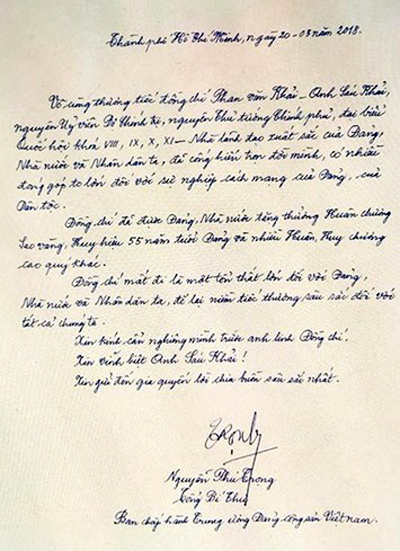 Thành phố Hồ Chí Minh, ngày 20-03 năm 2018.
Vô cùng thương tiếc đồng chí Phan Văn Khải - Anh Sáu Khải,
nguyên Uỷ viên Bộ Chính trị, nguyên Thủ tướng Chính phủ, đại biểu
Quốc hội khoá VIII, IX, X, XI - Nhà lãnh đạo xuất sắc của Đảng,
Nhà nước và Nhân dân ta, đã cống hiến trọn đời mình, có nhiều
đóng góp to lớn đối với sự nghiệp cách mạng của Đảng, của
Dân tộc.
Đồng chí đã được Đảng, Nhà nước tặng thưởng Huân chương
Sao vàng, Huy hiệu 55 năm tuổi Đảng và nhiều Huân, Huy chương
cao quý khác.
Đồng chí mất đi là một tổn thất lớn đối với Đảng,
Nhà nước và Nhân dân ta, để lại niềm tiếc thương sâu sắc đối với
tất cả chúng ta.
Xin kính cẩn nghiêng mình trước anh linh Đồng chí.
Xin vĩnh biệt Anh Sáu Khải!
Xin gửi đến gia quyến lời chia buồn sâu sắc nhất.
Trọng
Nguyễn Phú Trọng
Tổng Bí Thư
Ban chấp hành Trung ương Đảng cộng sản Việt Nam.